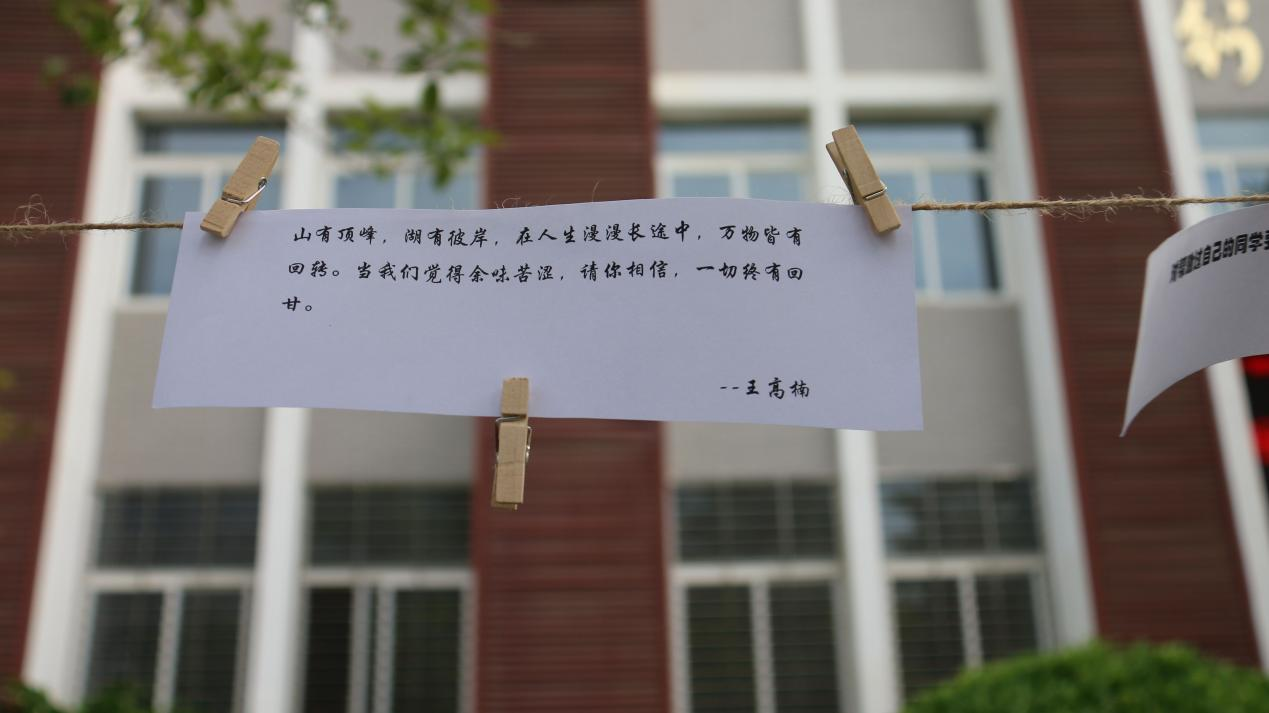 山有顶峰，湖有彼岸，在人生漫漫长途中，万物皆有
回转。当我们觉得余味苦涩，请你相信，一切终有回
甘。
--王高楠
过自己的同学